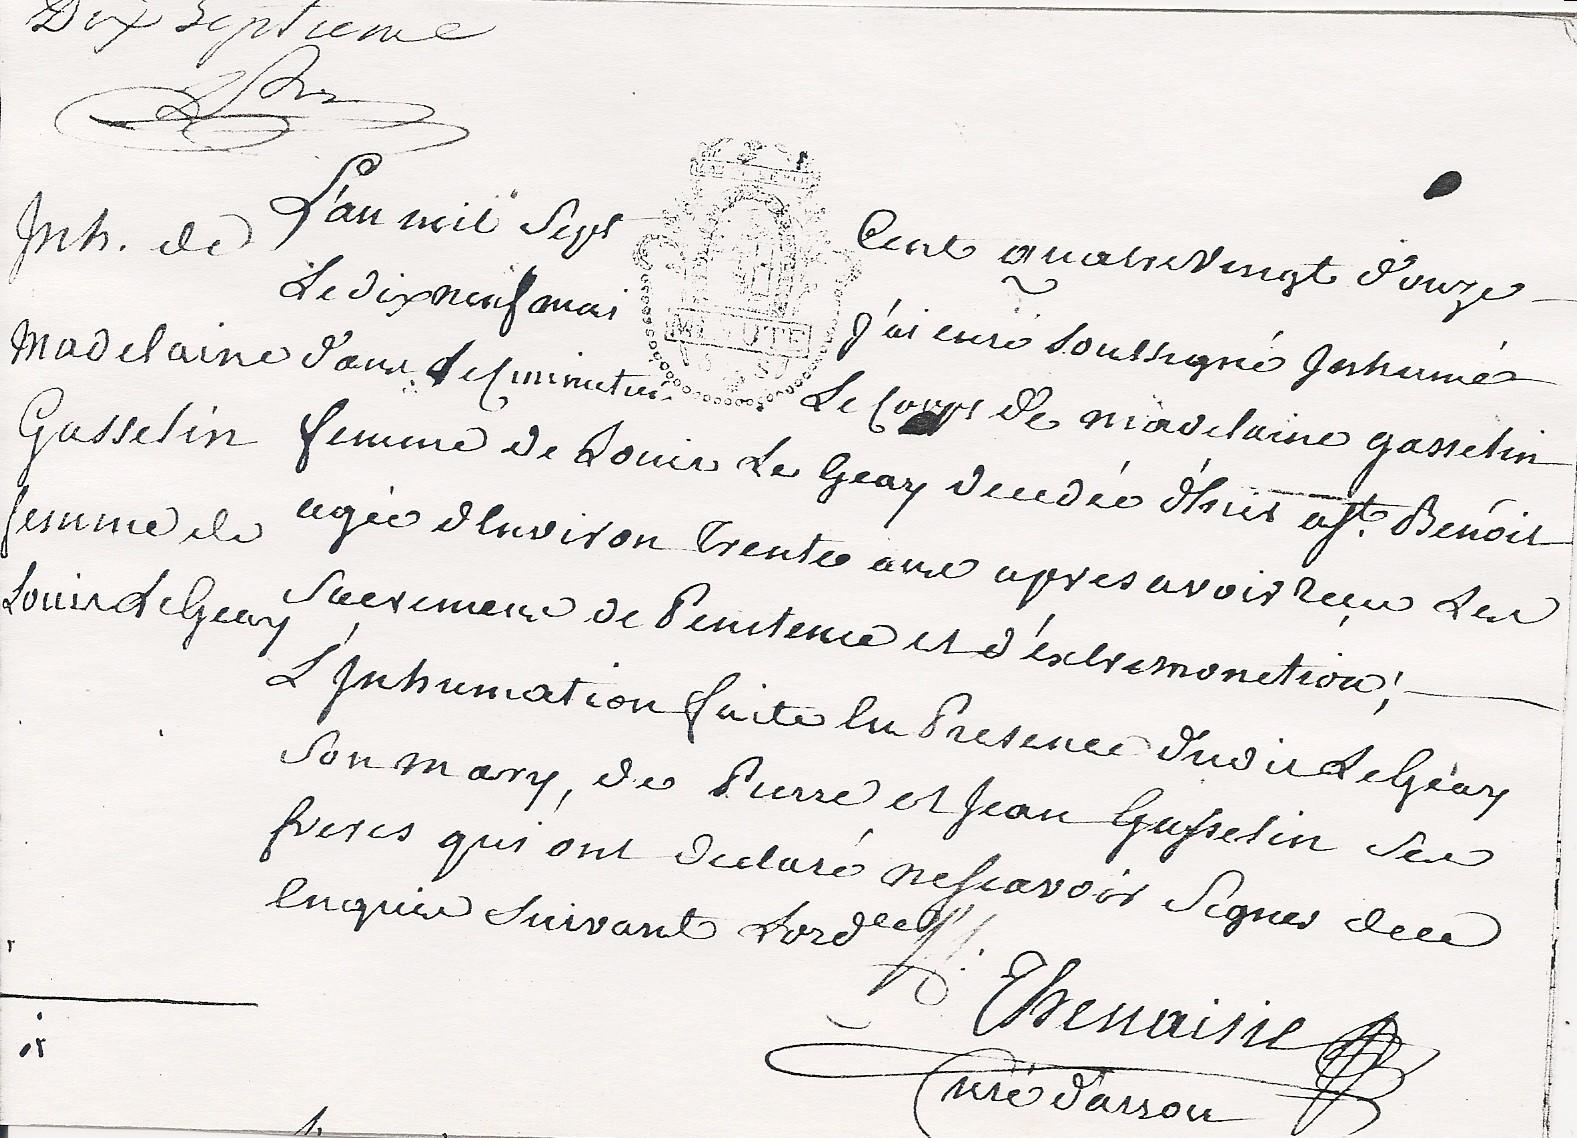 Dix septieme
Inh. de
Madelaine
Gasselin
femme de
Louis Le Geay
L'an mil sept Cent quatre vingt d'ouze
Le dix neuf mai j'ai curé soussigné Inhumé
d'ans Le Cimmetiere Le Corps de madelaine gasselin
femme de Louis Le Geay decedée d'hier a St. Benoist
agée d'Environ trente ans apres avoir reçu Les
Sacremens de Penitence et d'éxtremonction;
L'Inhumation faite En Presence dudit Le Géay
Son mary, de Pierre et Jean Gasselin Ses
freres qui ont declaré nesçavoir Signer de ce
Enquis Suivant Lord.ce
Thenaisie
Curé d'arsou
MINUTE